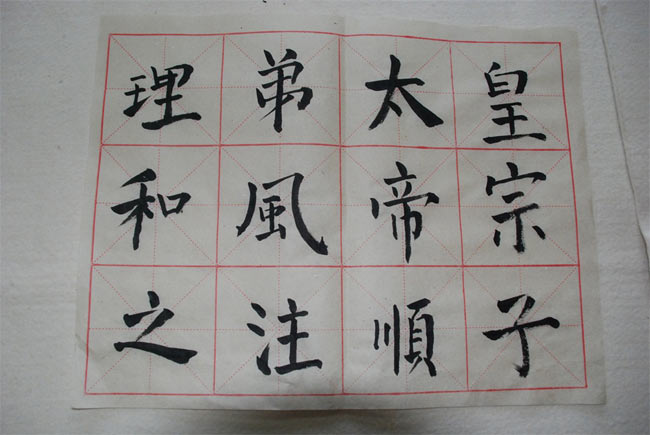 皇宗子
太帝順
弟風注
理和之